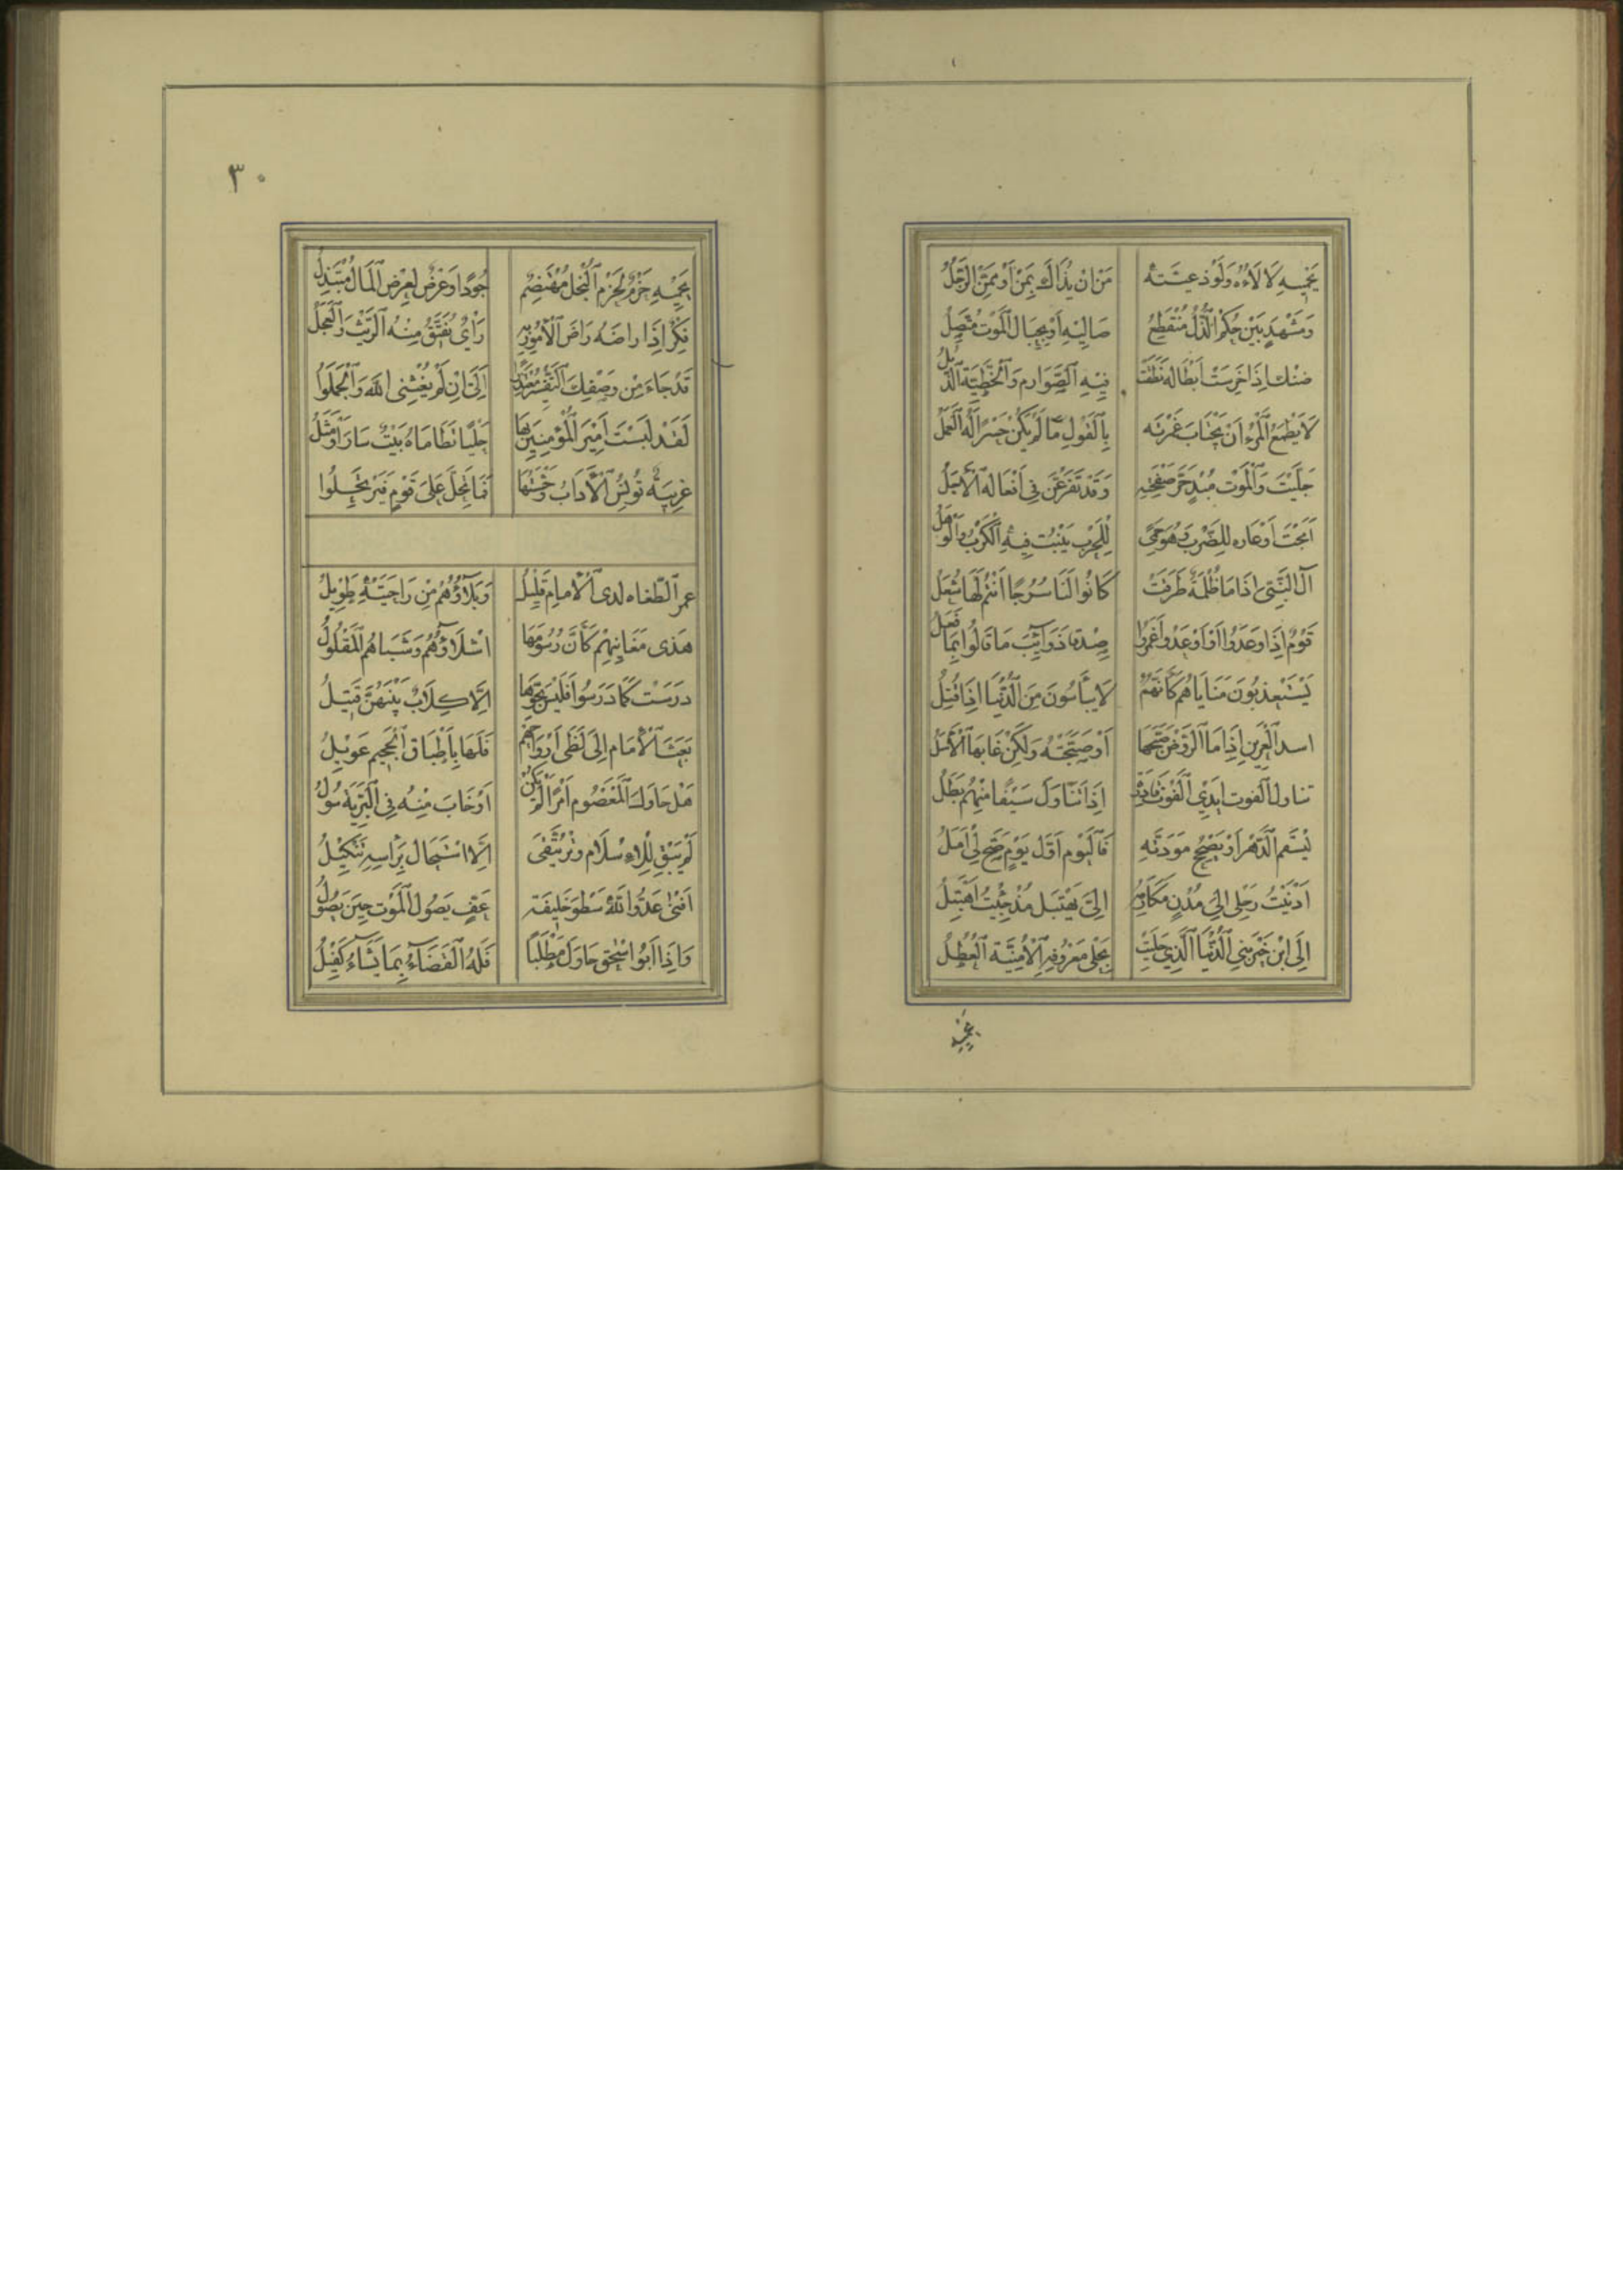 يَحْمِيهِ لَأْلَاؤُهُ وَلَوْذَعِيَّتُه مَنْ اَنْ يُذَالَ بِمَنْ اَوْ مِمَّنِ الرَّجُلُ
وَمَشْهَدٍ بَيْنَ حُكْمِ الذُّلِّ مُنْقَطِعٌ صَالِيْهِ اَوْ بِحِبَالِ الْمَوْتِ مُتَّصِلُ
ضنْك اِذَا خَرِسَتْ اَبْطَالُه نَطَقَتْ فِيْهِ الصَّوَارِم وَالْخَطِّيَّةُ الذُّبُلُ
لَا يَطْمَعُ الْمَرْءُ اَنْ يَجْتَابَ غَمْرَتَه بِالْقَوْلِ مَا لَمْ يَكُنْ جِسْرًا لَهُ الْعَمَلُ
جَلَّيْتَ وَالْمَوْتُ مُبْدٍ حُرَّ صَفْحَتِهِ وَقَدْ تَفَرْعَنَ فِى اَفْعَالِهِ الْاَجَلُ
اَبَحْتَ اَوْعَاره لِلضَّرْبِ وَهُوَ حِمًى لِلْحَرْبِ يَنْبُتُ فِيْهِ الْكَرْبُ وَالْوَهَلُ
آلُ النَّبِىِّ اِذَا مَا ظُلْمَةٌ طَرَقَتْ كَانُوا لَنَا سُرُجًا اَنْتُمْ لَهَا شُعَلُ
قَوْمٌ اِذَا وَعَدُوا اَوْ اَوْعَدُوا غَمَرُوا صِدْقًا ذَوَائِبَ مَا قَالُوا بِمَا فَعَلُوا
يَسْتَعْذِبُونَ مَنَايَاهُمْ كَاَنَّهُمْ لَا يَيْأَسُونَ مِنَ الدُّنْيَا اِذَا قُتِلُوا
اسد الْعَرِينِ اِذَا مَا الرَّوْعُ صَبَّحَهَا اَوْ صَبَّحَتْهُ وَلٰكِنْ غَابُهَا الْاَسَلُ
تناول الْفوت اَيْدِي الْمَوْتِ قَادِرَةً اِذَا تَنَاوَلَ سَيْفًا مِنْهُمُ بَطَلُ
لِيَسْقَمِ الدَّهْرُ اَوْ تَصْحِحْ مَوَدَّتُهُ فَالْيَوْم اَوَّل يَوْمٍ صَحَّ لِيْ اَمَلُ
اَدْنَيْتُ رَحْلِى اِلَى مُدْنٍ مَكَارِمَه اِلَىَّ يَهْتَبِل مُذْ جِئْتُ اَهْتَبِلُ
اِلَى ابْنِ خَيْرِ بَنِي الدُّنْيَا الَّذِي حَلِيَتْ بِحَلْى مَعْرُوفِهِ الْاُمْنِيَّة الْعُطُلُ
يحميه
٣٠
يَحْمِيْهِ حَزْمٌ لِحَزْمِ الْبُخْلِ مُهْتَضِمٌ جُوْدًا وَعِرْضٌ لِعِرْضِ الْمَالِ مُبْتَذِلُ
فِكْرٌ اِذَا رَاضَهُ رَاضَ الْاُمُورَ بِهِ رَأْىٌ تَفَنَّنَ مِنْهُ الرَّيْثُ وَالْعَجَلُ
قَدْ جَاءَ مِنْ وَصْفِكَ التَّفْسِيرُ مُعْتَذِرًا اِلَىَّ اِنْ لَمْ يُغِثْنِى اللهُ وَالْجُمَلُ
لَقَدْ لَبِسْتَ اَمِيْرَ الْمُؤْمِنِيْنَ بِهَا حَلْيًا نَظَامَاهُ بَيْتٌ سَارَ اَوْ مَثَلُ
غَرِيبَةٌ تُونِسُ الْآدَابُ وَحْشَتَهَا فَمَا تَحُلُّ عَلَى قَوْمٍ فَتَرْتَحِلُ
عمرُ الطّغاه لدى الْاِمامِ قَلِيْلُ وَبَلَاؤُهُمْ مِنْ رَاحَتَيْهِ طَوِيْلُ
هٰذى مَغَانِيهِمْ كَاَنَّ رُسُومَهَا اَشْلَاؤُهُمْ وَشَبَاهُمُ الْمَفْلُولُ
دَرَسَتْ كَمَا دَرَسُوا فَلَيْسَ بِجَوِّهَا اِلَّا كِلَابٌ بَيْنَهُنَّ قَتِيْلُ
بَعَثَ الْاِمَام اِلَى لَظٰى اَرْوَاحَهُمْ فَلَهَا بِاَطْبَاقِ الْجَحِيمِ عَوِيْلُ
هَلْ حَاوَلَ الْمَعْصُومُ اَمْرًا لَمْ يَكُنْ اَوْ خَابَ مِنْهُ فِى الْبَرِيَّةِ سُولُ
لَمْ يَبْقَ لِلْاِسْلَامِ وِتْرٌ يُتَّقٰى اِلَّا اسْتَجَالَ بِرَأْسِهِ تَنْكِيْلُ
اَفْنٰى عَدُوَّ اللهِ سَطْوُ خَلِيفَةٍ عَقِّ يَصُولُ الْمَوْتُ حِيْنَ يَصُولُ
وَاِذَا اَبُوا اِسْحٰقَ حَاوَلَ مَطْلَبًا فَلَهُ الْقَضَاءُ بِمَا يَشَاءُ كَفِيْلُ